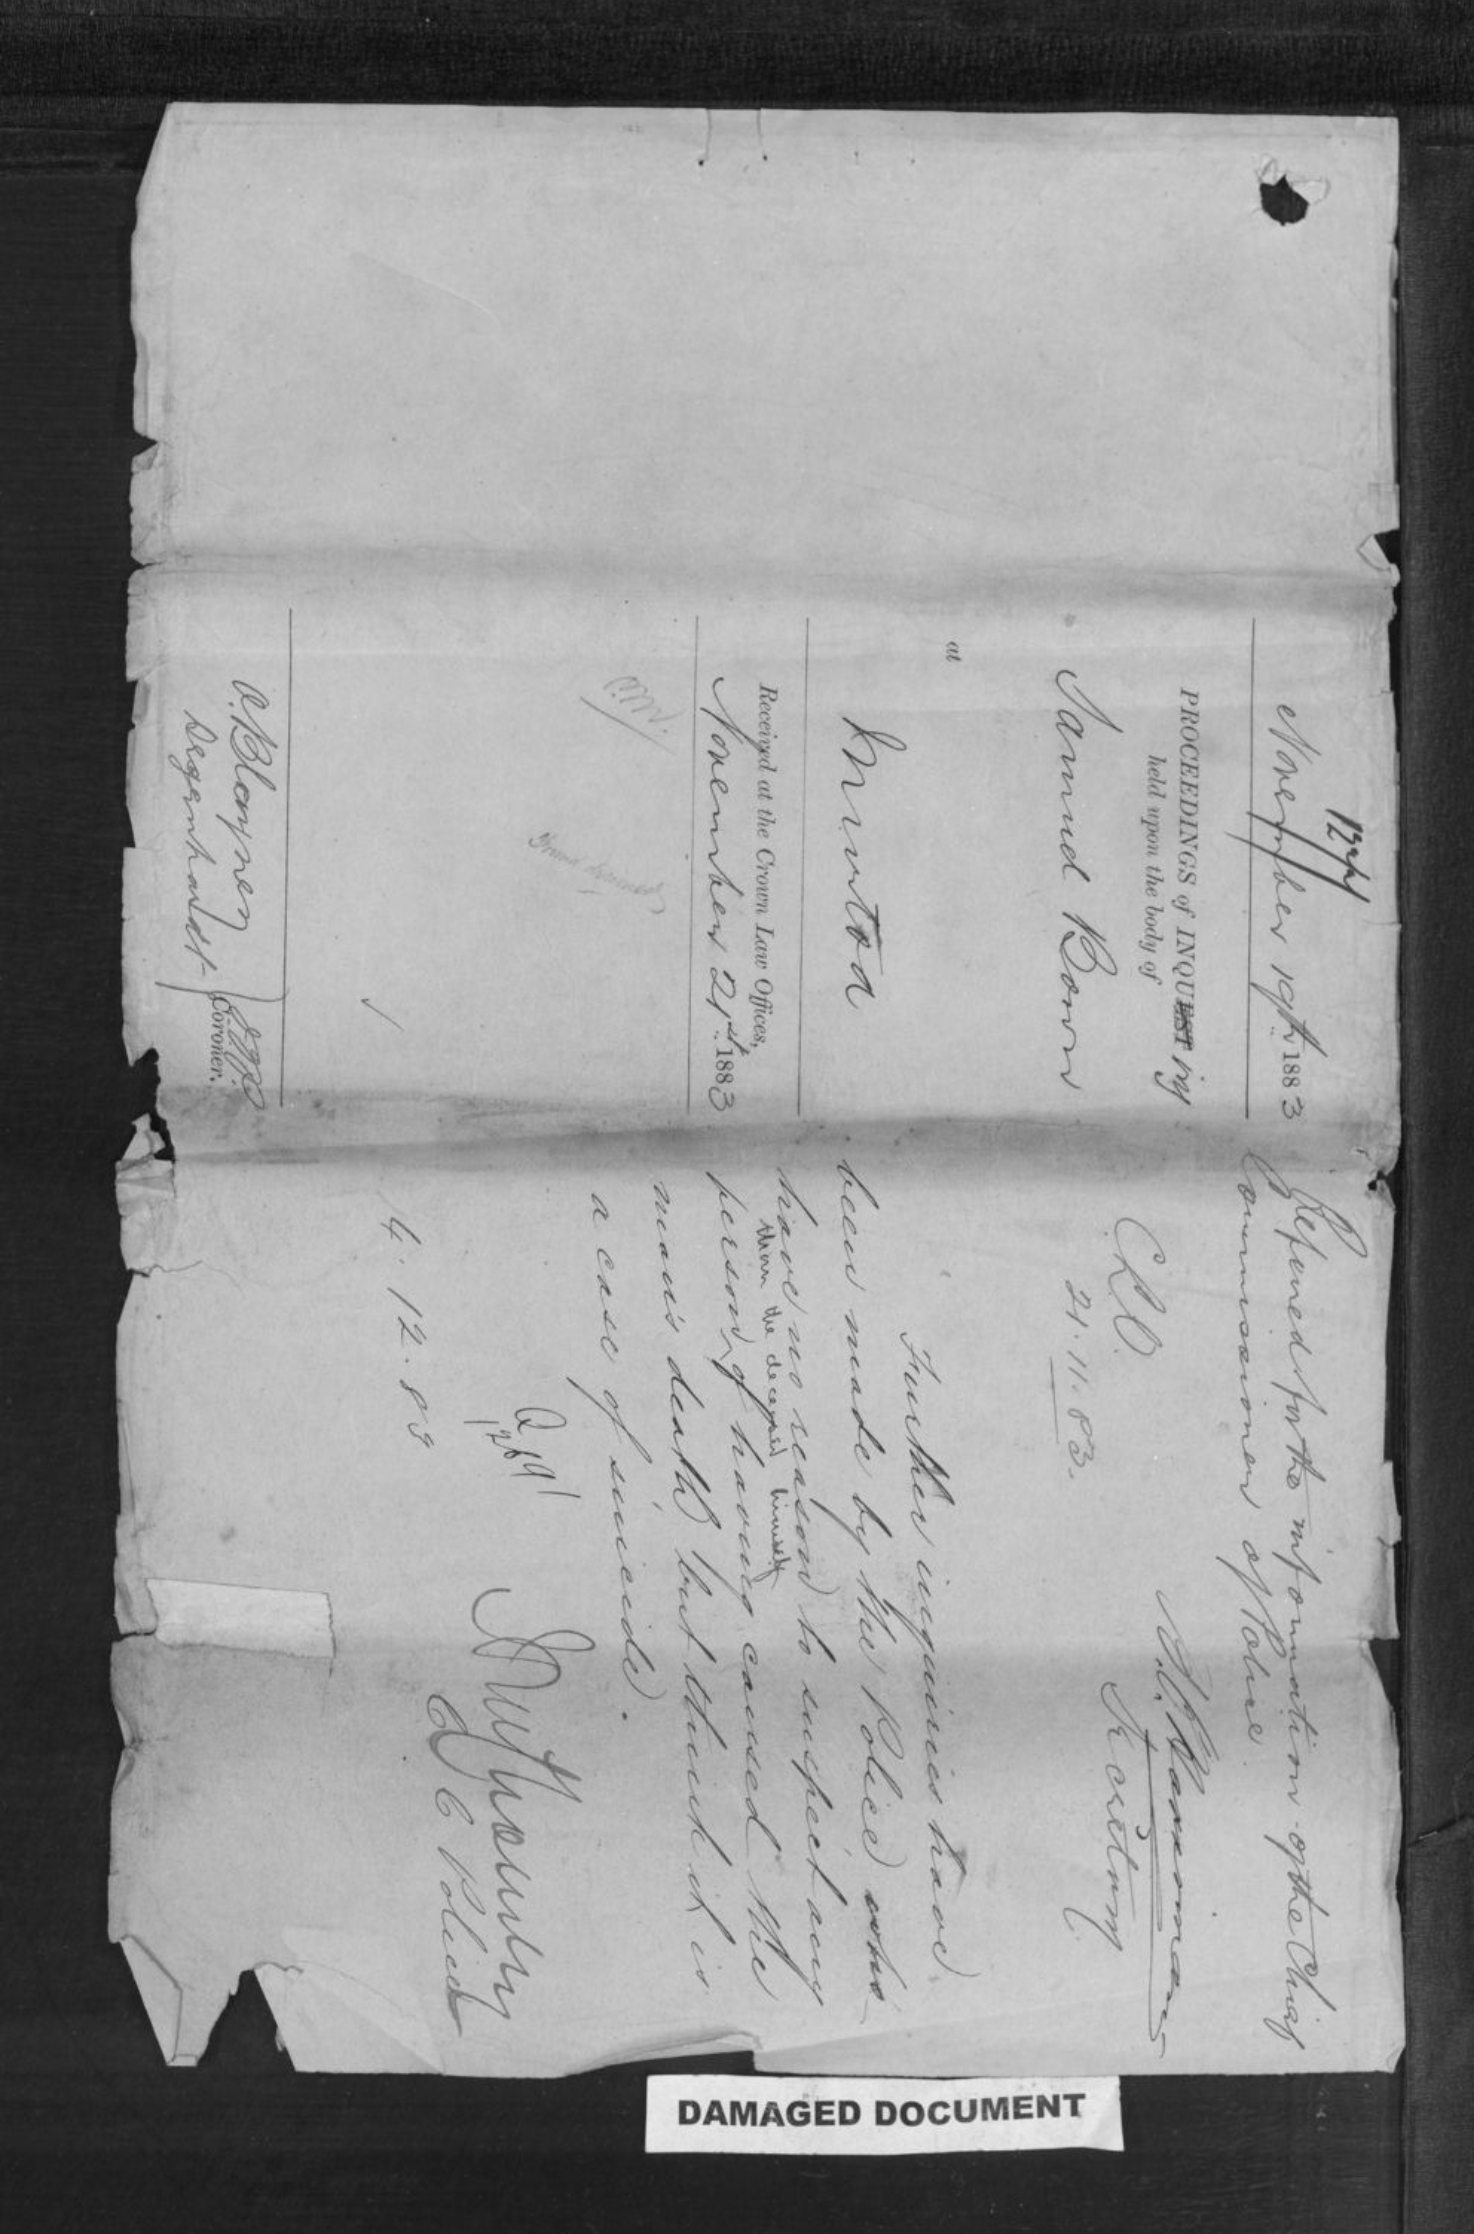 November 19th 1883
PROCEEDINGS of INQUEST iry
held upon the body of
Samuel Bown
at
Received at the Crown Law Offices,
November 21st 1883
Coroner.
Referred for the information of the Chief
Commissioner of Police.
Secretary
C.L.O.
21.11.83.
Further inquiries have
been made by the Police who
have no reason to suspect any
than the deceased himself
person of having caused the
man's death but think it is
a case of suicide.
Police
4.12.83
DAMAGED DOCUMENT